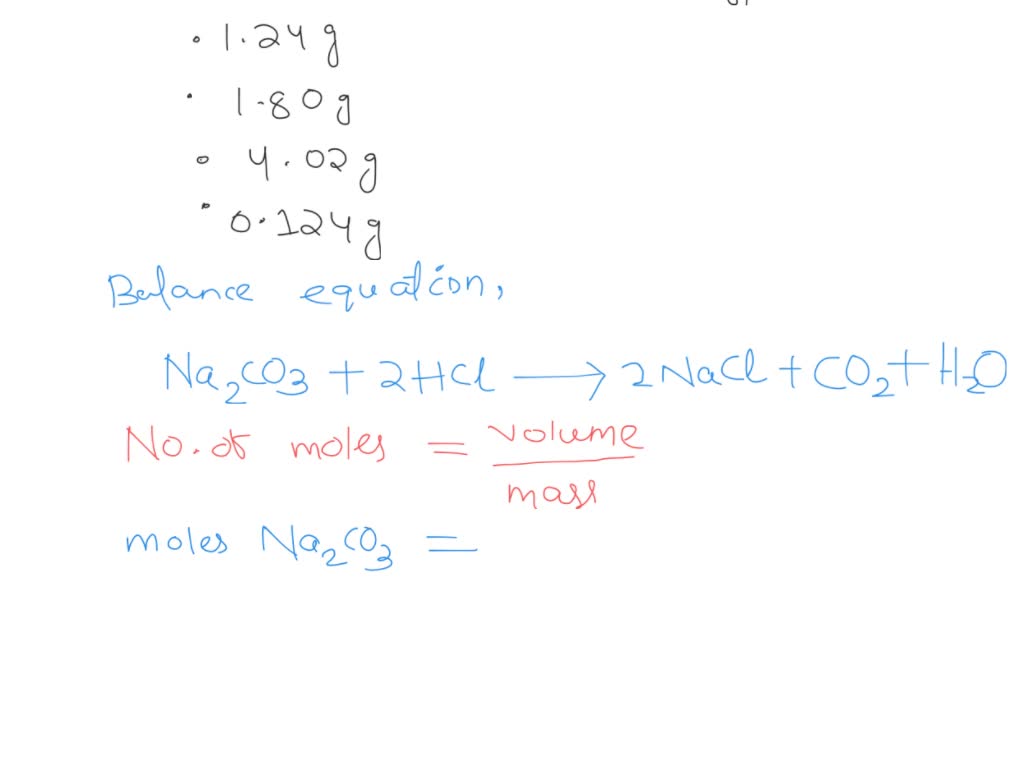 • 1.24 g
• 1.80 g
• 4.02 g
• 0.124 g
Balance equation,
Na₂CO₃ + 2HCl ⟶ 2NaCl + CO₂ + H₂O
No. of moles = volume / mass
moles Na₂CO₃ =